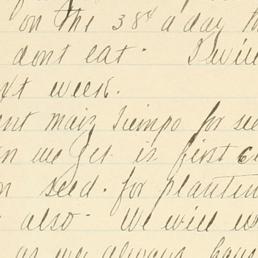 on the 38¢ a day th
dont eat. I will
xt week.
ent maiz tiempo for see
n we get is first c
n seed. for plantin
also. We will us
as we always have